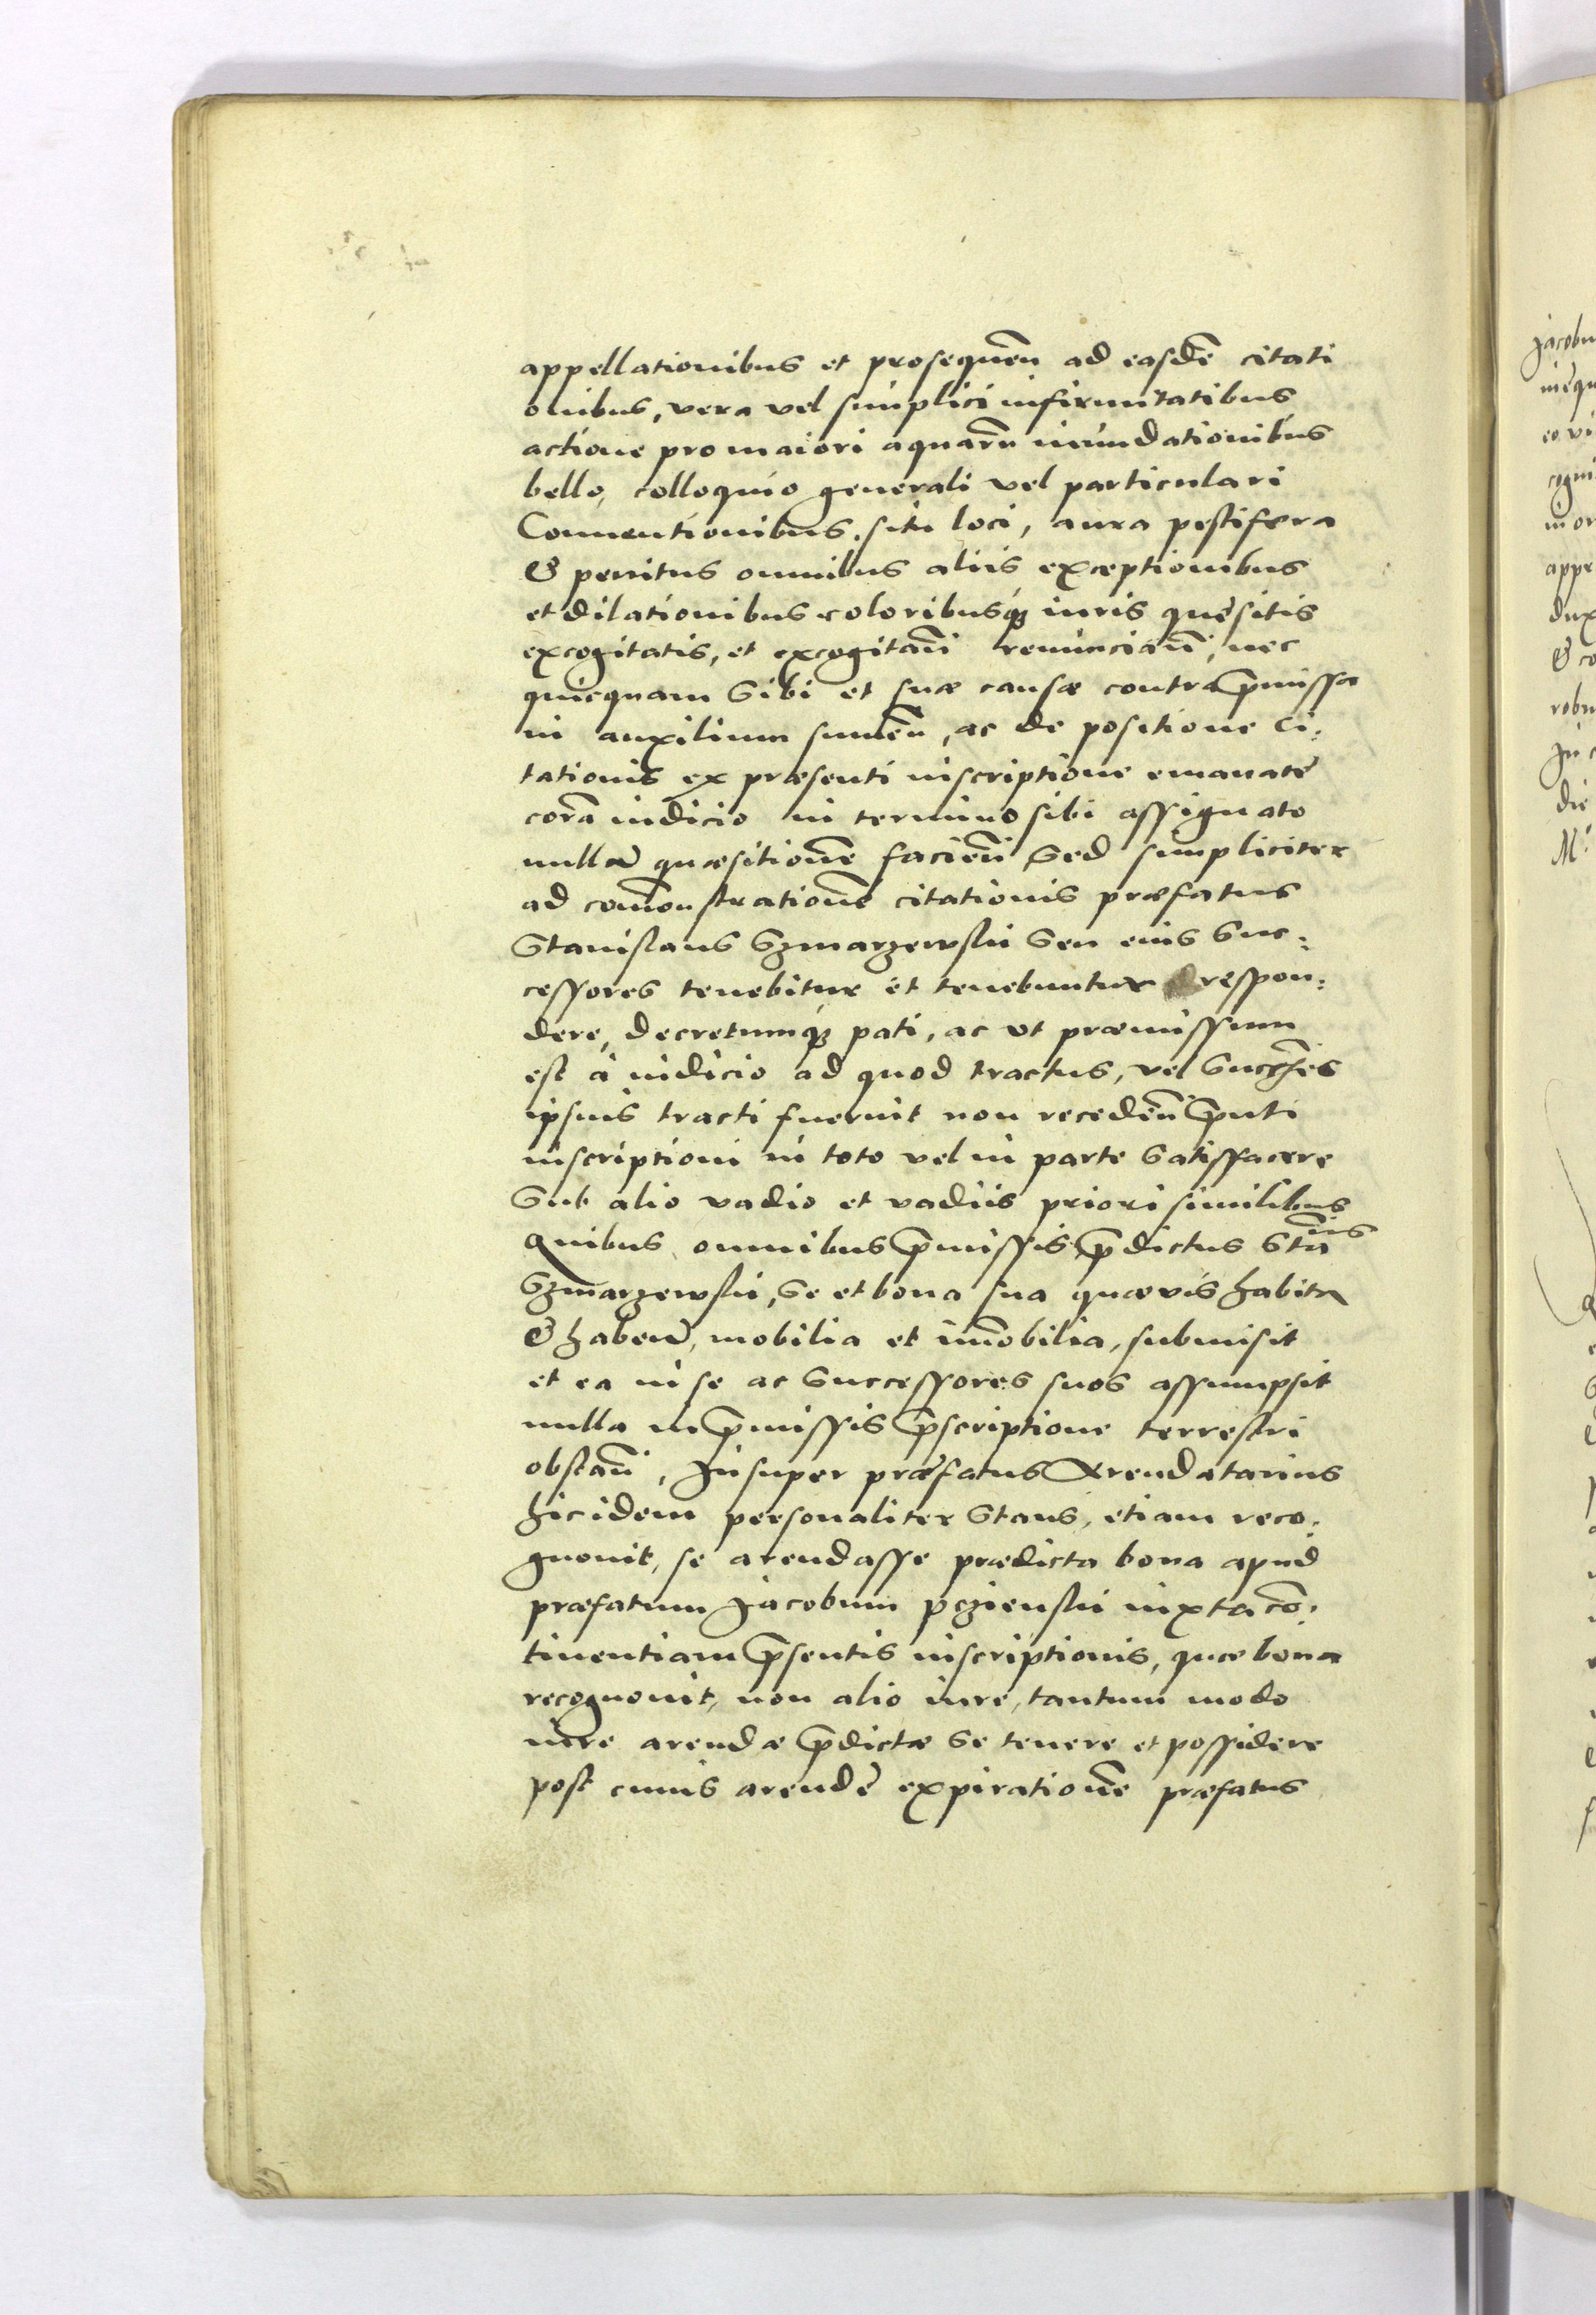 appellationibus et prosequen̄ ad easdē citati
onibus, vera vel simplici infirmitatibus
actione pro maiori aquarū inundationibus
bello, colloquio generali vel particulari
Conuentionibus, situ loci, aura pestifera
& penitus omnibus aliis exceptionibus
et dilationibus coloribusq3 iuris quęsitis
excogitatis, et excogitan̄ renuncian̄, nec
quicquam sibi et suæ causæ contra p̄missa
in auxilium sumen̄, ac de positione Ci:
tationis ex præsenti inscriptione emanatę
corā iudicio in termino sibi assignato
nullā quæsitionē facien̄ sed simpliciter
ad comonstrationē citationis præfatus
Stanislaus Szmarzewski seu eius Suc:
cessores tenebitur et tenebuntur respon:
dere, decretumq3 pati, ac vt præmissum
est à iudicio ad quod tractus, vel succ̄res
ipsius tracti fuerint non receden̄ p̄nti
inscriptioni in toto vel in parte satisfacere
Sub alio vadio et vadiis priori similibus
Quibus omnibus p̄missis p̄dictus Stāus
Szmarzewski, se et bona sua quævis habita
& haben̄, mobilia et im̄obilia, submisit
et ea in se ac successores suos assumpsit
nulla in p̄missis p̄scriptione terrestri
obstan̄, Insuper præfatus Arendatarius
hic idem personaliter stans, etiam reco:
gnouit, se arendasse prædicta bona apud
præfatum Jacobum iuxta cō:
tinentiam p̄sentis inscriptionis, quæ bona
recognouit, non alio iure, tantum modo
iure arendæ p̄dictæ se tenere et possidere
post cuius arendę expirationē præfatus